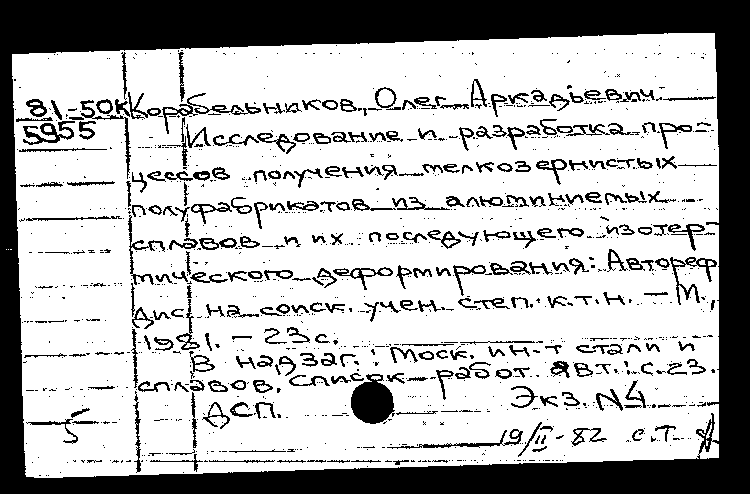 81-50к Корабельников, Олег Аркадьевич
5955 Исследование и разработка про-
цессов получения мелкозернистых
полуфабрикатов из алюминиемых
сплавов и их последующего изотер-
мического деформирования: Автореф
дис. на соиск. учен. степ. к.т.н. – М.,
1981. – 23 с.
В надзаг.: Моск. ин-т стали и
сплавов. Список работ авт.: с. 23.
ДСП. Экз. N4.
5 19/II-82 с.т.